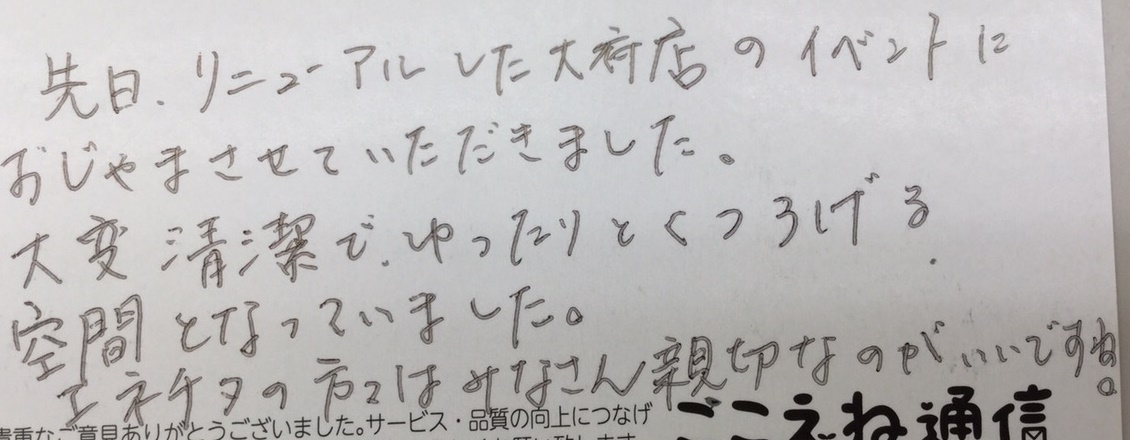 先日、リニューアルした大府店のイベントに
おじゃまさせていただきました。
大変清潔で、ゆったりとくつろげる
空間となっていました。
エネチタの方々はみなさん親切なのがいいですね。
貴重なご意見ありがとうございました。サービス・品質の向上につなげ
ここえね通信